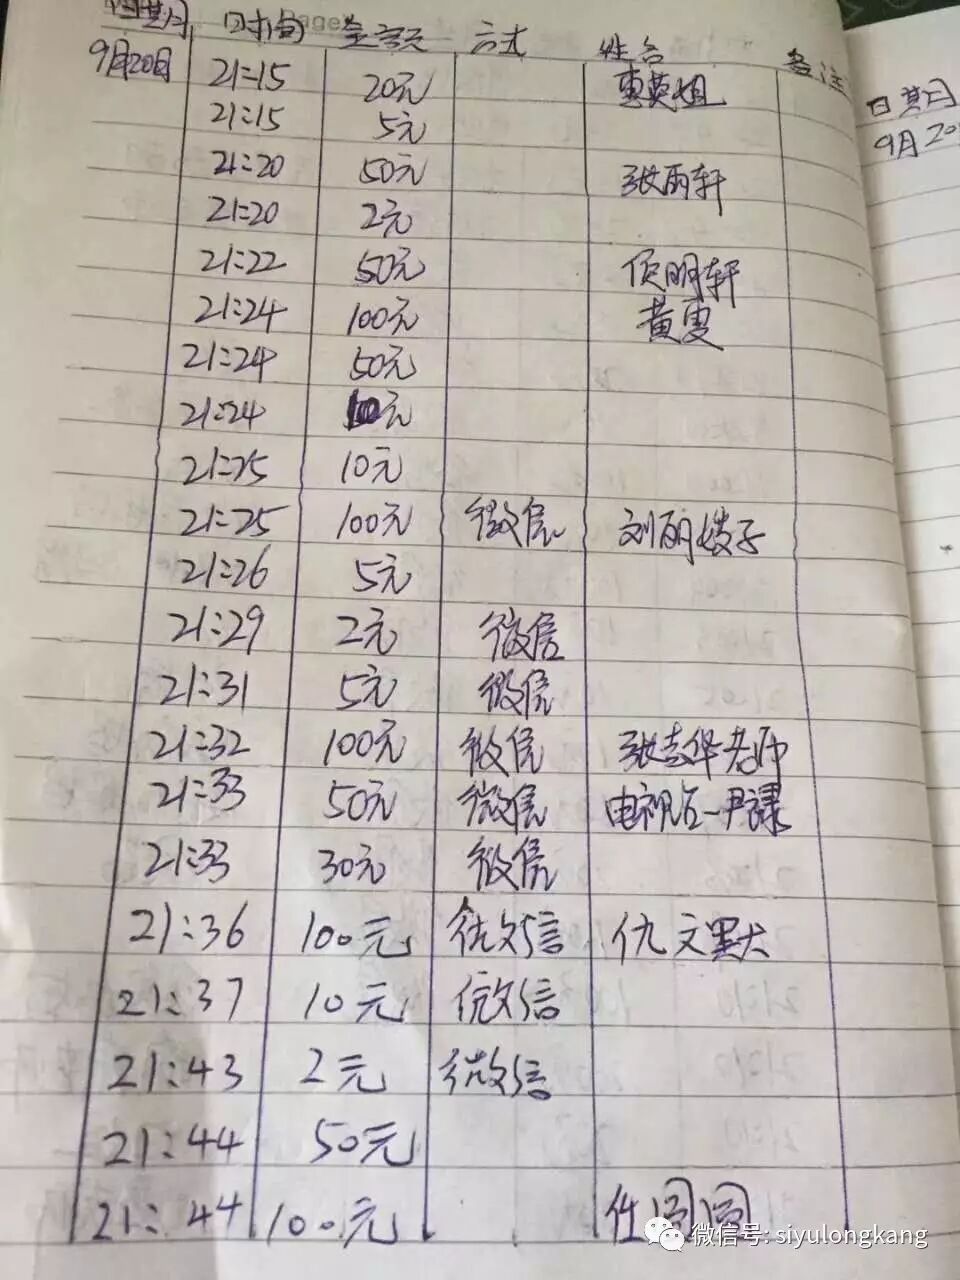 日期 时间 金额 方式 姓名 备注
9月20日 21:15 20元 惠英姐
21:15 5元
21:20 50元 张雨轩
21:20 2元
21:22 50元 侯明轩
21:24 100元 黄雯
21:24 50元
21:24 元
21:25 10元
21:25 100元 微信 刘丽嫂子
21:26 5元
21:29 2元 微信
21:31 5元 微信
21:32 100元 微信 张志华老师
21:33 50元 微信 电视台一尹课
21:33 30元 微信
21:36 100元 微信 仇文默
21:37 10元 微信
21:43 2元 微信
21:44 50元
21:44 100元 任圆圆
日期
9月20
Page
微信号: siyulongkang